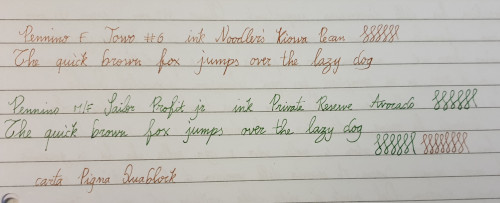 Pennino F Towo #6 ink Noodler's Kiowa Pecan
The quick brown fox jumps over the lazy dog
Pennino M/F Sailor Profit jr ink Private Reserve Avocado
The quick brown fox jumps over the lazy dog
carta Pigna Quablock